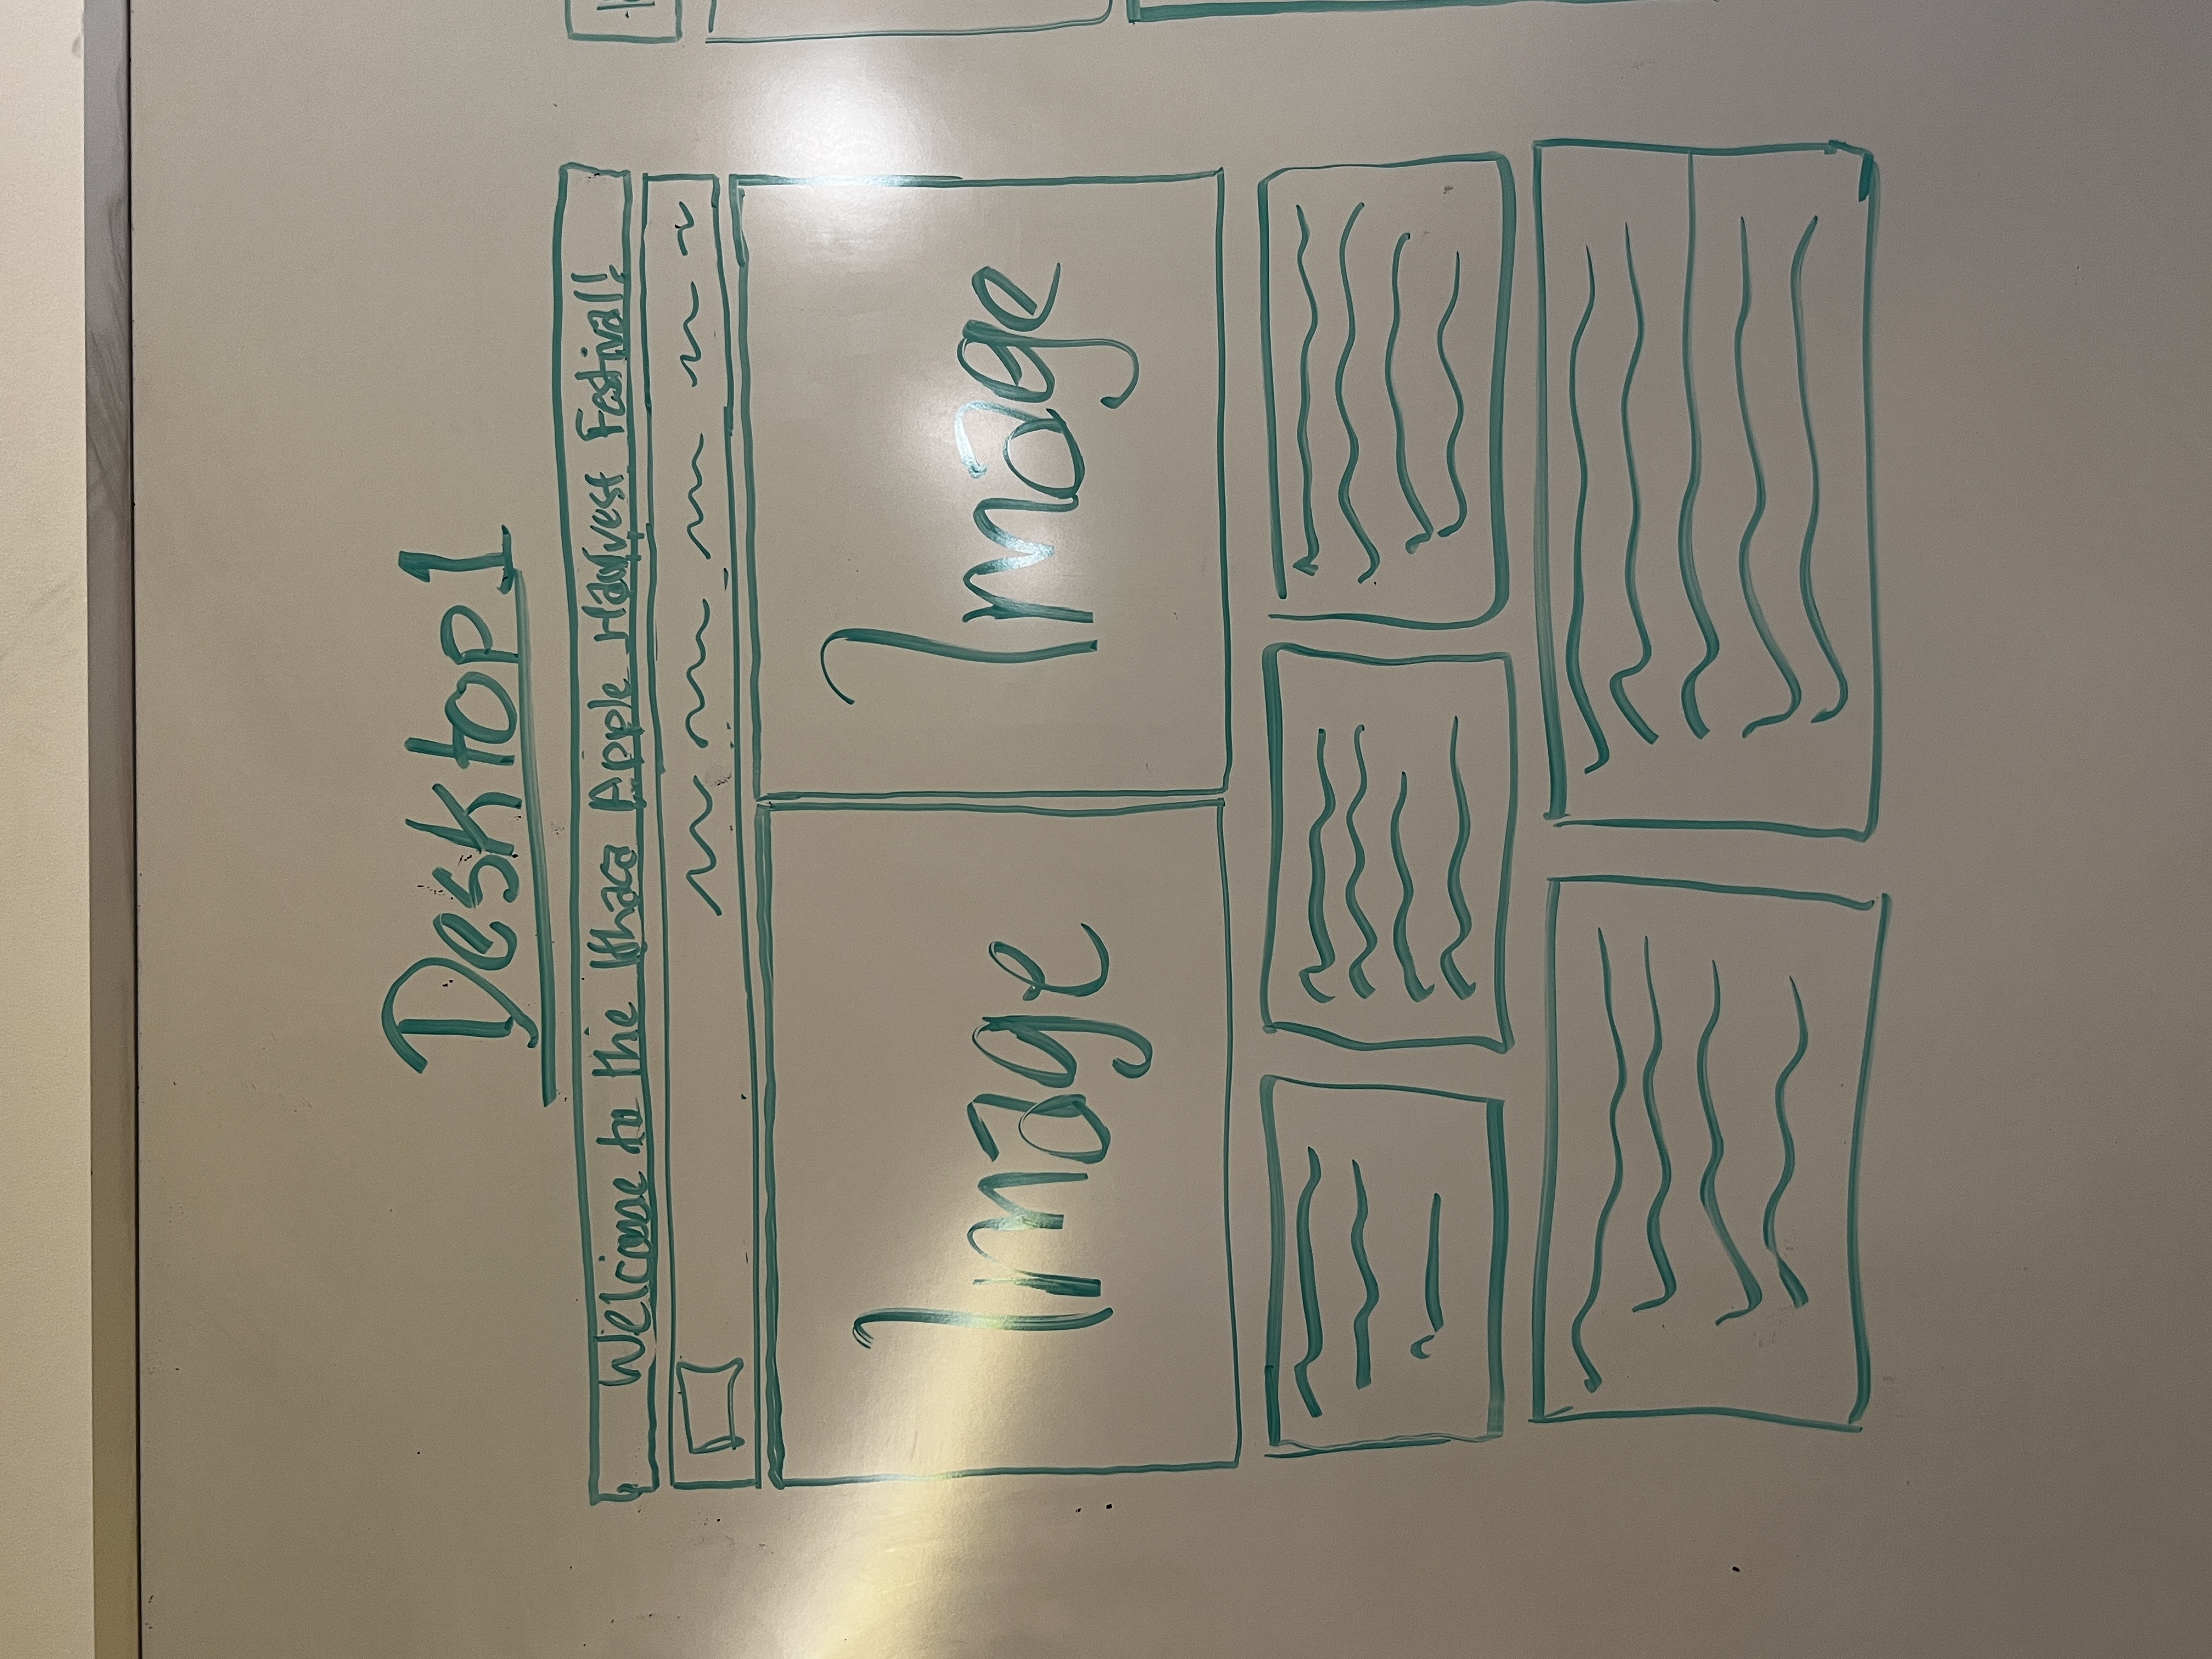 Desktop1
Welcome to the Ithaca Apple Harvest Festival!
Image Image